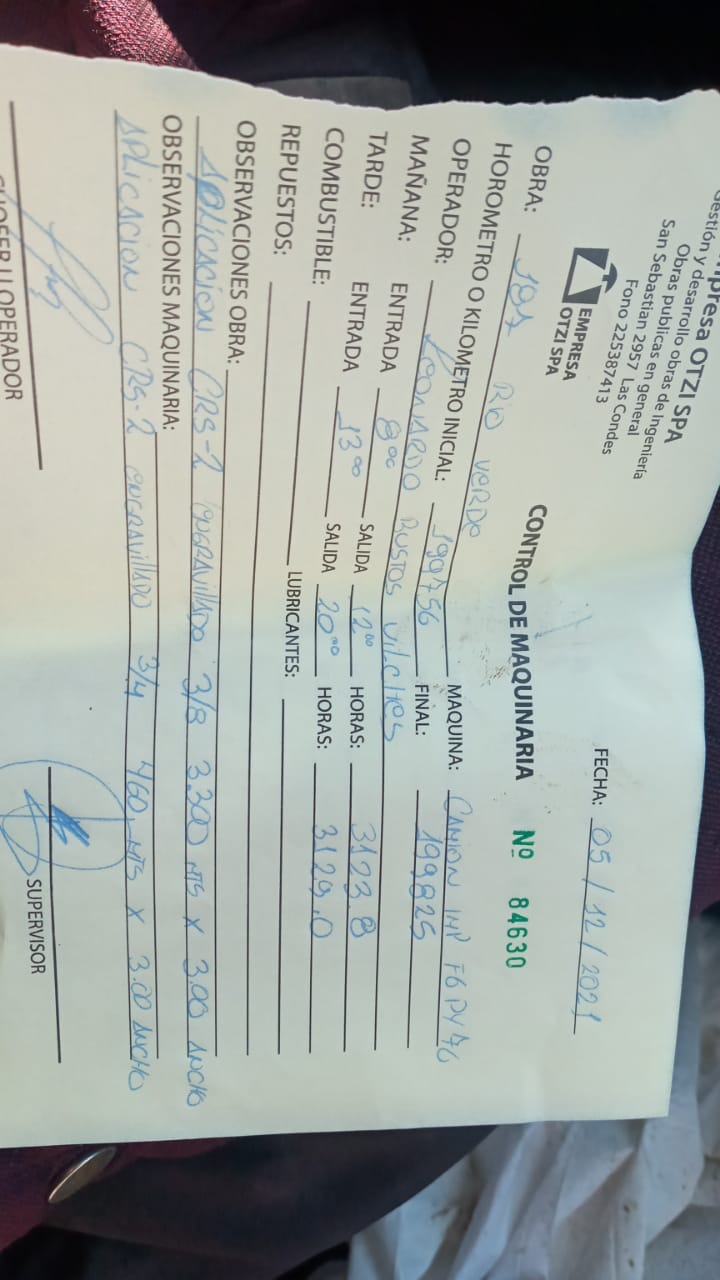 Empresa OTZI SPA
Gestión y desarrollo obras de Ingeniería
Obras publicas en general
San Sebastian 2957 Las Condes
Fono 225387413
EMPRESA
OTZI SPA
FECHA: 05 / 12 / 2021
CONTROL DE MAQUINARIA Nº 84630
OBRA: 187 RIO VERDE
MAQUINA: CAMION IMP F6 PY 76
HOROMETRO O KILOMETRO INICIAL: 199756 FINAL: 199825
OPERADOR: LEONARDO BUSTOS VILCHES
MAÑANA: ENTRADA 8:00 SALIDA 12:00 HORAS: 3123.8
TARDE: ENTRADA 13:00 SALIDA 20:00 HORAS: 3129.0
COMBUSTIBLE: LUBRICANTES:
REPUESTOS:
OBSERVACIONES OBRA:
APLICACION CRS-2 ENGRAVILLADO 3/8 3.300 MTS X 3.00 ANCHO
OBSERVACIONES MAQUINARIA:
APLICACION CRS-2 ENGRAVILLADO 3/4 460 MTS X 3.00 ANCHO
CHOFER U OPERADOR
SUPERVISOR